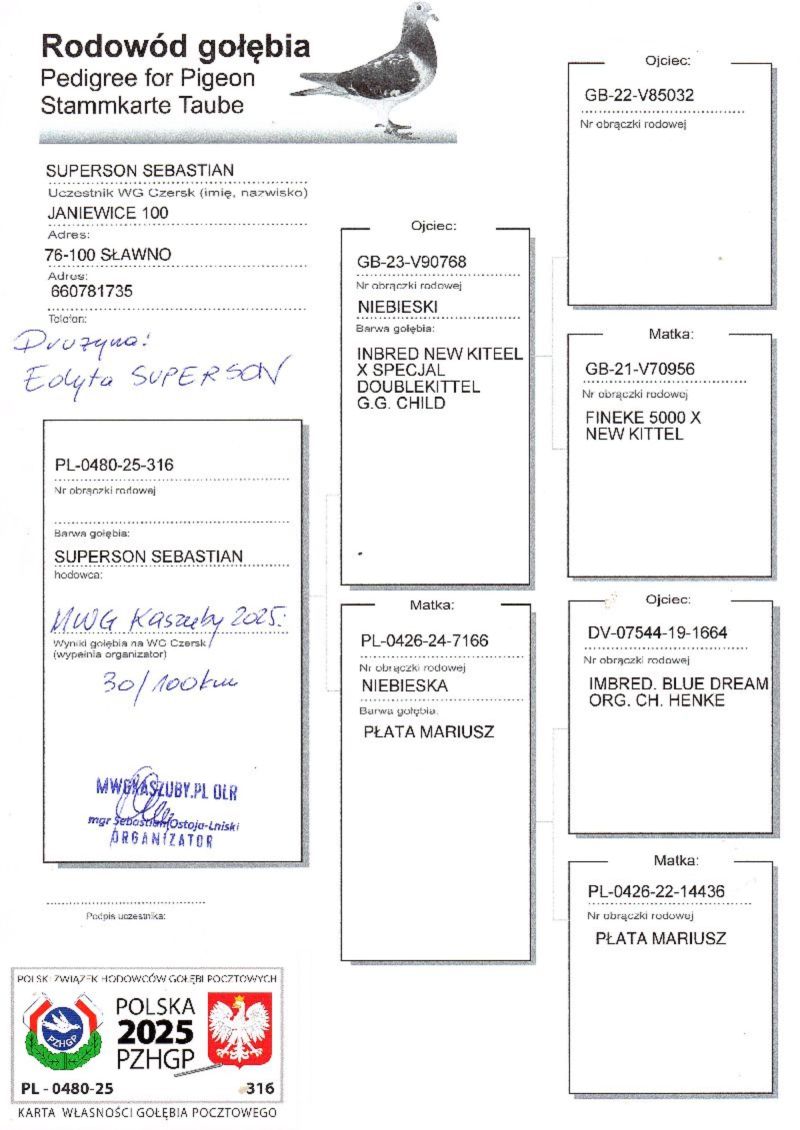 Rodowód gołębia
Pedigree for Pigeon
Stammkarte Taube
SUPERSON SEBASTIAN
Uczestnik WG Czersk (imię, nazwisko)
JANIEWICE 100
Adres:
76-100 SŁAWNO
Adres:
660781735
Telefon:
Drużyna:
Edyta SUPERSON
PL-0480-25-316
Nr obrączki rodowej
Barwa gołębia:
SUPERSON SEBASTIAN
hodowca:
MWG Kaszuby 2025.
Wyniki gołębia na WG Czersk
(wypełnia organizator)
30/100km
MWGKASZUBY.PL OLR
mgr Sebastian Ostoja-Lniski
ORGANIZATOR
Podpis uczestnika:
Ojciec:
GB-23-V90768
Nr obrączki rodowej
NIEBIESKI
Barwa gołębia:
INBRED NEW KITEEL
X SPECJAL
DOUBLEKITTEL
G.G. CHILD
Matka:
PL-0426-24-7166
Nr obrączki rodowej
NIEBIESKA
Barwa gołębia.
PŁATA MARIUSZ
Ojciec:
GB-22-V85032
Nr obrączki rodowej
Matka:
GB-21-V70956
Nr obrączki rodowej
FINEKE 5000 X
NEW KITTEL
Ojciec:
DV-07544-19-1664
Nr obrączki rodowej
IMBRED. BLUE DREAM
ORG. CH. HENKE
Matka:
PL-0426-22-14436
Nr obrączki rodowej
PŁATA MARIUSZ
POLSKI ZWIĄZEK HODOWCÓW GOŁĘBI POCZTOWYCH
PZHGP
POLSKA
2025
PZHGP
PL - 0480-25 316
KARTA WŁASNOŚCI GOŁĘBIA POCZTOWEGO